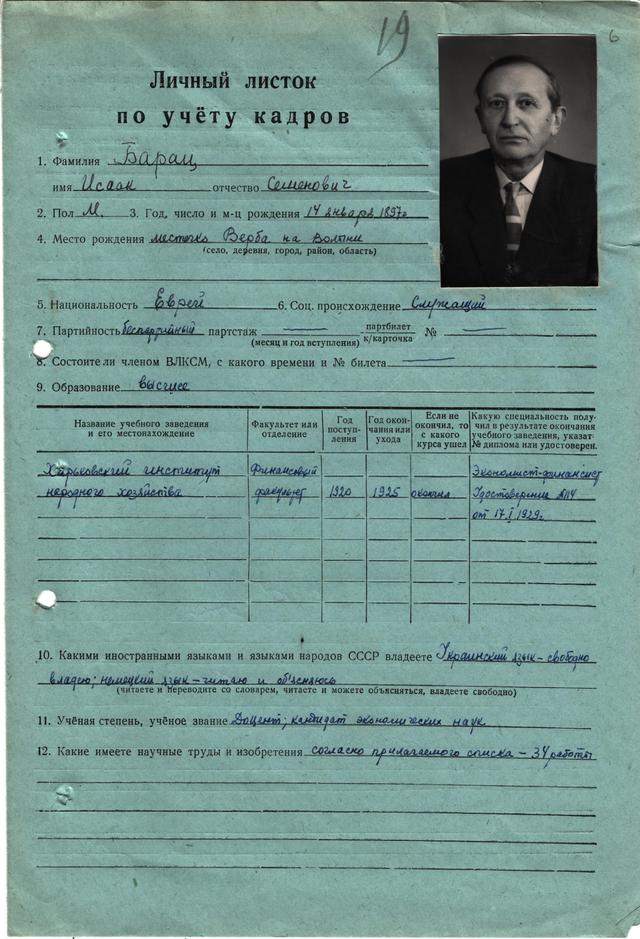 19
6
Личный листок
по учёту кадров
1. Фамилия Барац
имя Исаак отчество Семенович
2. Пол М. 3. Год, число и м-ц рождения 14 января 1897г
4. Место рождения местечко Верба на Волыни
(село, деревня, город, район, область)
5. Национальность Еврей 6. Соц. происхождение Служащий
7. Партийность беспартийный партстаж — партбилет к/карточка № —
(месяц и год вступления)
8. Состоите ли членом ВЛКСМ, с какого времени и № билета —
9. Образование высшее
Название учебного заведения и его местонахождение
Факультет или отделение
Год поступ-ления
Год окон-чания или ухода
Если не окончил, то с какого курса ушел
Какую специальность полу-чил в результате окончания учебного заведения, указат. № диплома или удостоверен.
Харьковский институт Финансовый Экономист-финансист
народного хозяйства факультет 1920 1925 окончил Удостоверение №114
от 17.I 1929г.
10. Какими иностранными языками и языками народов СССР владеете Украинский язык – свободно
владею; немецкий язык – читаю и объясняюсь
(читаете и переводите со словарем, читаете и можете объясняться, владеете свободно)
11. Учёная степень, учёное звание Доцент; кандидат экономических наук
12. Какие имеете научные труды и изобретения согласно прилагаемого списка – 34 работы